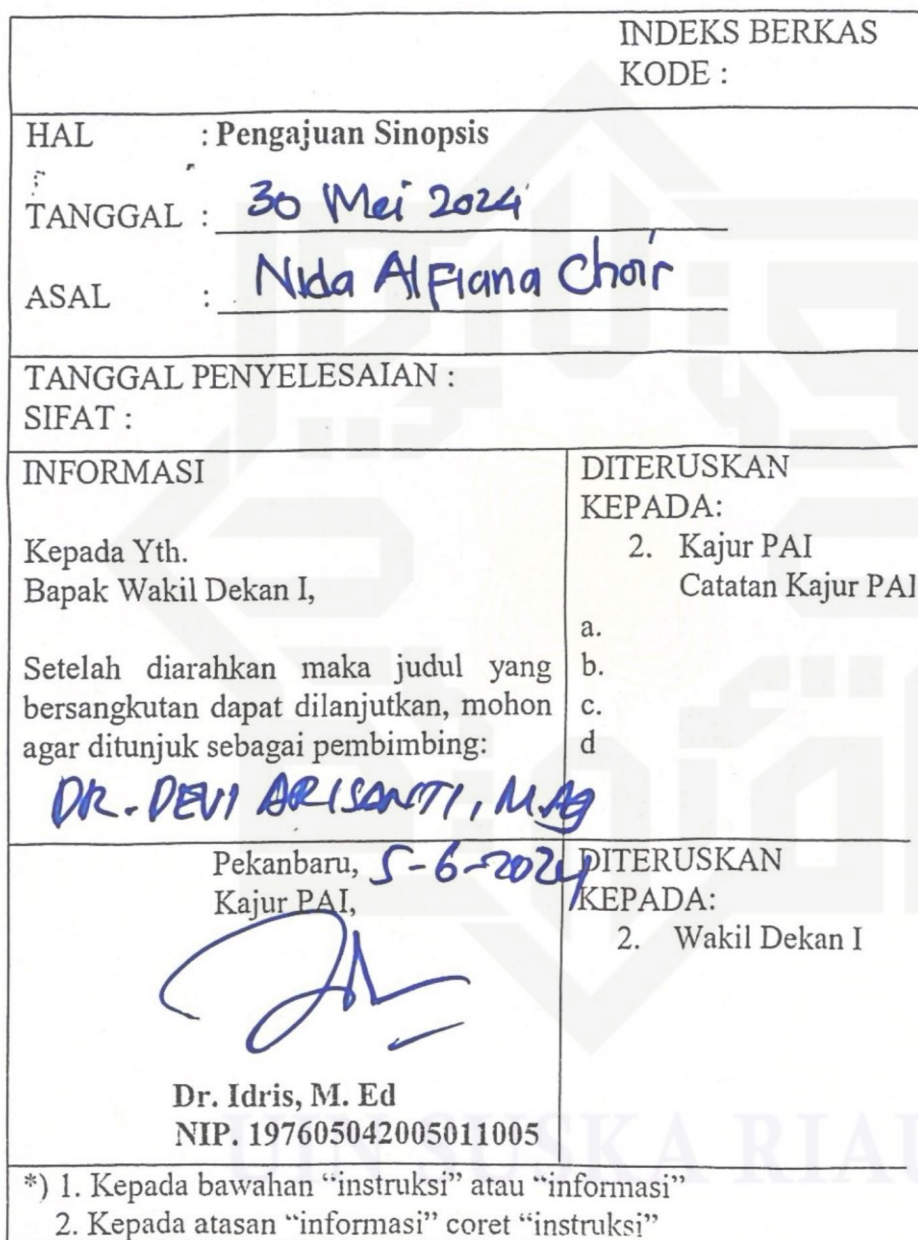 INDEKS BERKAS
KODE :
HAL : Pengajuan Sinopsis
TANGGAL : 30 Mei 2024
ASAL : Nida Alfiana Choir
TANGGAL PENYELESAIAN :
SIFAT :
INFORMASI
Kepada Yth.
Bapak Wakil Dekan I,
Setelah diarahkan maka judul yang
bersangkutan dapat dilanjutkan, mohon
agar ditunjuk sebagai pembimbing:
DR. DEVI ARISANTI, M.Ag
DITERUSKAN
KEPADA:
2. Kajur PAI
Catatan Kajur PAI
a.
b.
c.
d
Pekanbaru, 5-6-2024
Kajur PAI,
Dr. Idris, M. Ed
NIP. 197605042005011005
DITERUSKAN
KEPADA:
2. Wakil Dekan I
*) 1. Kepada bawahan “instruksi” atau “informasi”
2. Kepada atasan “informasi” coret “instruksi”
UIN SUSKA RIAU